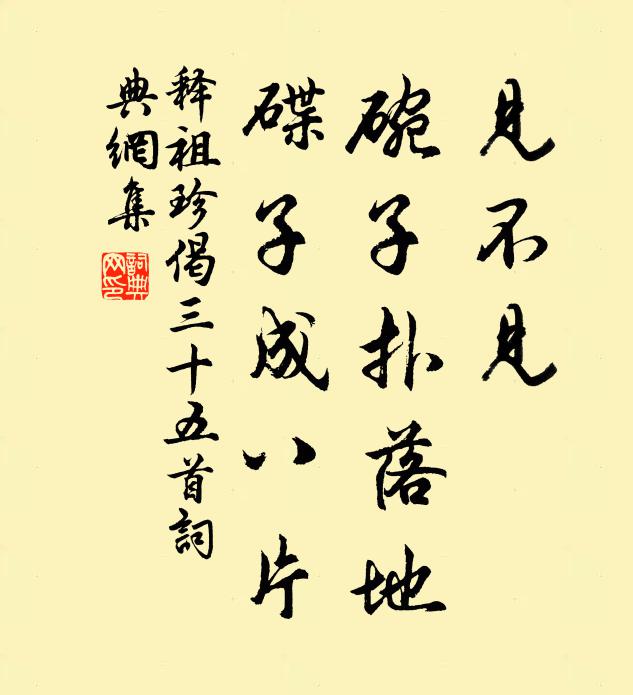 見不見
碗子扑落地
碟子成八片
释祖珍偈三十五首詞
典網集
詞典
网印